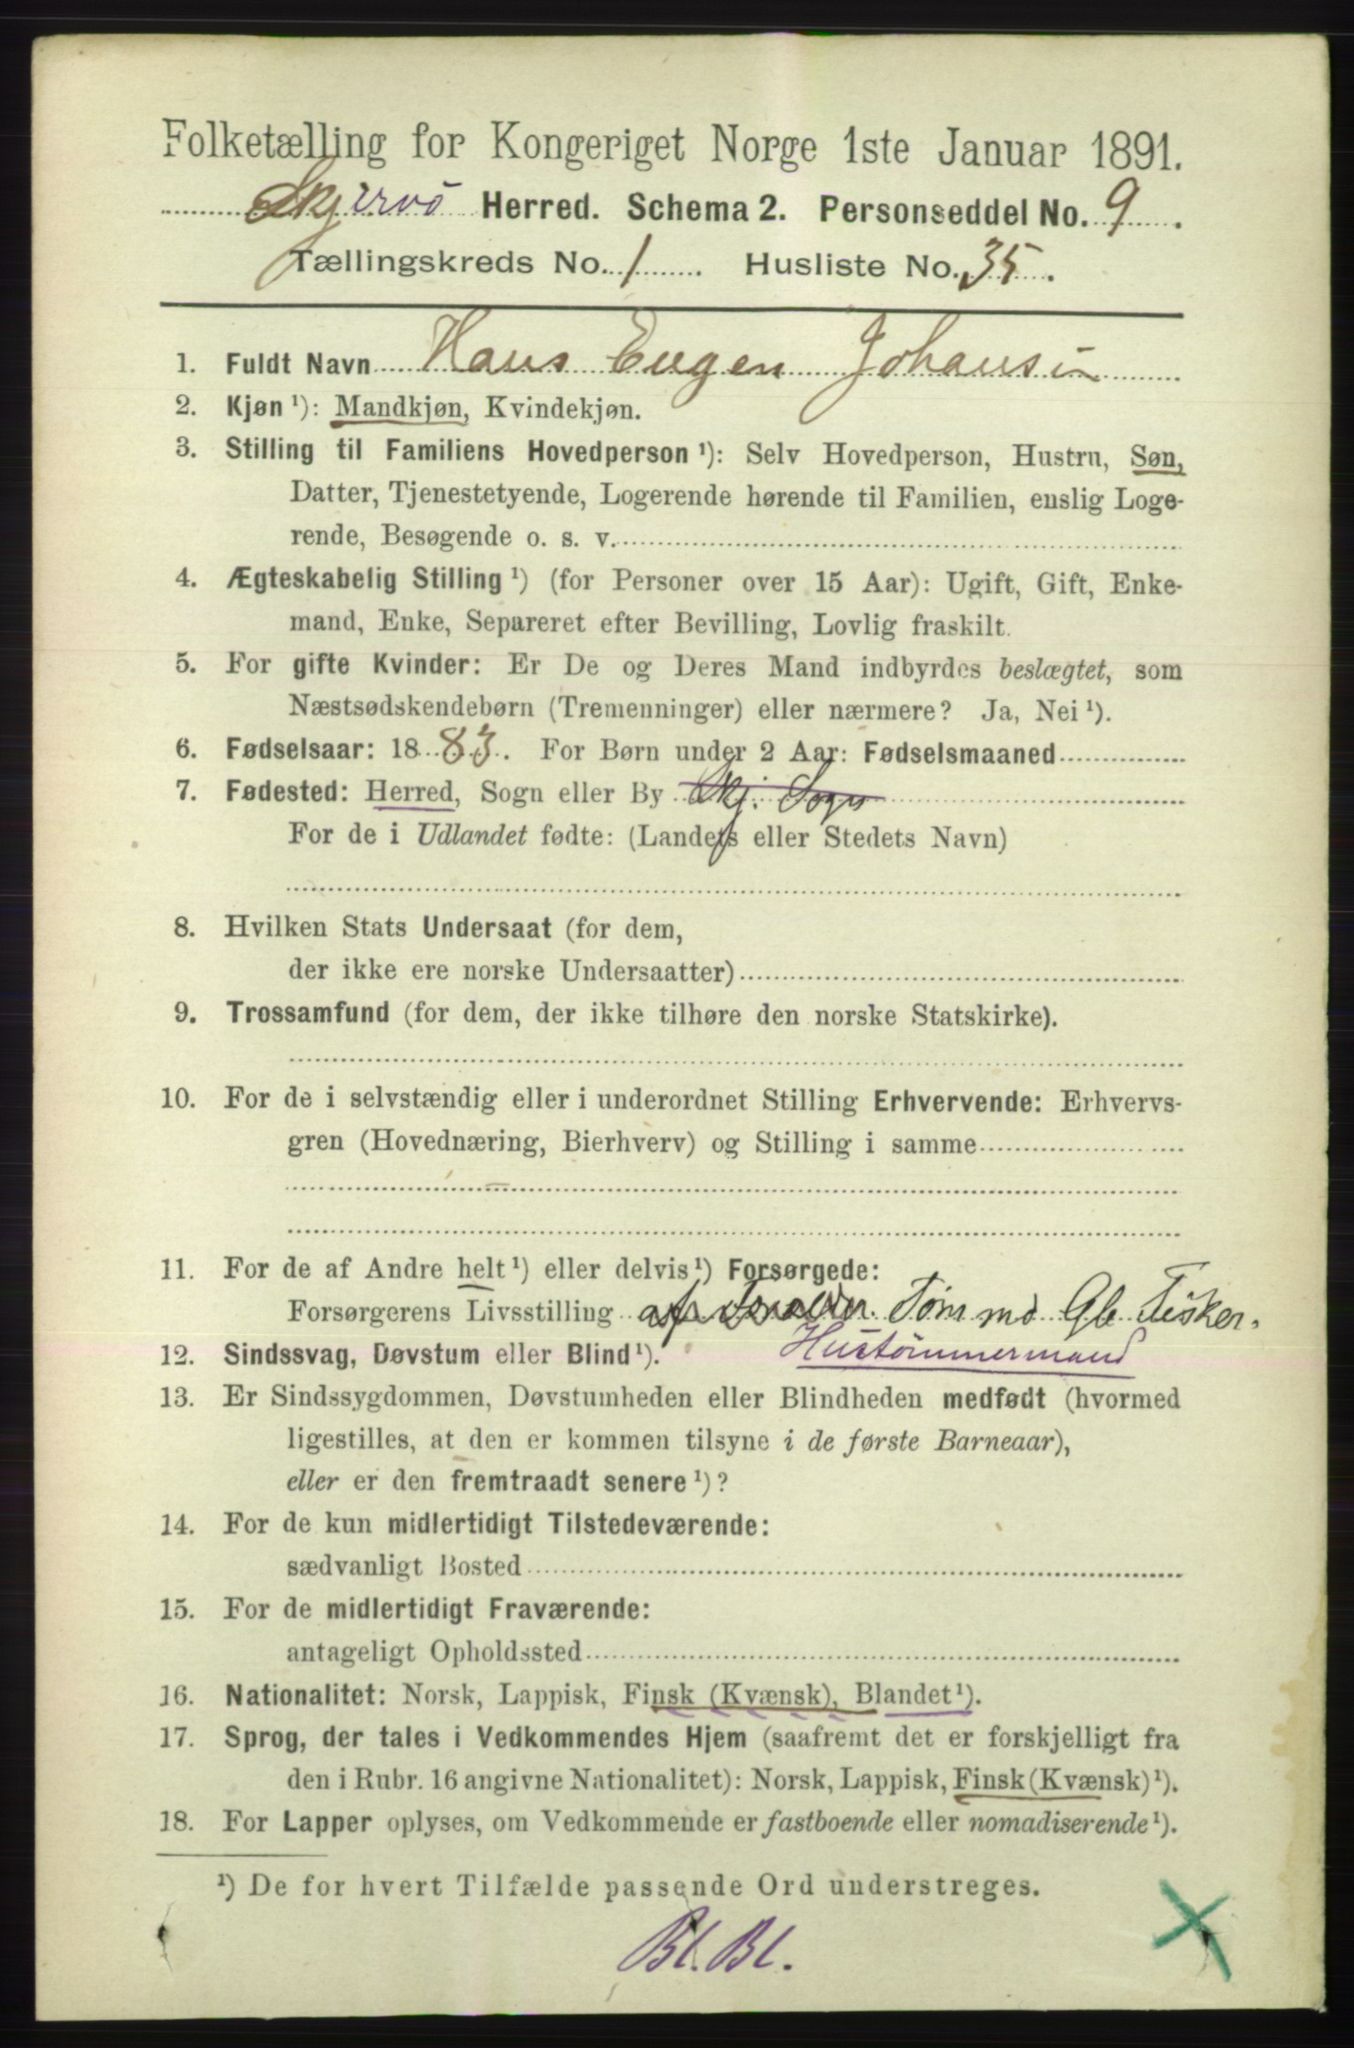 Folketælling for Kongeriget Norge 1ste Januar 1891.
Skjervö Herred. Schema 2. Personseddel No. 9.
Tællingskreds No. 1. Husliste No. 35.
1. Fuldt Navn Hans Eugen Johansen
2. Kjøn ¹): Mandkjøn, Kvindekjøn.
3. Stilling til Familiens Hovedperson ¹): Selv Hovedperson, Hustru, Søn,
Datter, Tjenestetyende, Logerende hørende til Familien, enslig Loge-
rende, Besøgende o. s. v.
4. Ægteskabelig Stilling ¹) (for Personer over 15 Aar): Ugift, Gift, Enke-
mand, Enke, Separeret efter Bevilling, Lovlig fraskilt.
5. For gifte Kvinder: Er De og Deres Mand indbyrdes beslægtet, som
Næstsødskendebørn (Tremenninger) eller nærmere? Ja, Nei ¹).
6. Fødselsaar: 1883. For Børn under 2 Aar: Fødselsmaaned
7. Fødested: Herred, Sogn eller By Skj. Sogn
For de i Udlandet fødte: (Landets eller Stedets Navn)
8. Hvilken Stats Undersaat (for dem,
der ikke ere norske Undersaatter)
9. Trossamfund (for dem, der ikke tilhøre den norske Statskirke).
10. For de i selvstændig eller i underordnet Stilling Erhvervende: Erhvervs-
gren (Hovednæring, Bierhverv) og Stilling i samme
11. For de af Andre helt ¹) eller delvis ¹) Forsørgede:
Forsørgerens Livsstilling af Tømmd Gb. Fisker.
12. Sindssvag, Døvstum eller Blind ¹). Hustømmermand
13. Er Sindssygdommen, Døvstumheden eller Blindheden medfødt (hvormed
ligestilles, at den er kommen tilsyne i de første Barneaar),
eller er den fremtraadt senere ¹)?
14. For de kun midlertidigt Tilstedeværende:
sædvanligt Bosted
15. For de midlertidigt Fraværende:
antageligt Opholdssted
16. Nationalitet: Norsk, Lappisk, Finsk (Kvænsk), Blandet ¹).
17. Sprog, der tales i Vedkommendes Hjem (saafremt det er forskjelligt fra
den i Rubr. 16 angivne Nationalitet): Norsk, Lappisk, Finsk (Kvænsk) ¹).
18. For Lapper oplyses, om Vedkommende er fastboende eller nomadiserende ¹).
¹) De for hvert Tilfælde passende Ord understreges.
Bl. Bl.